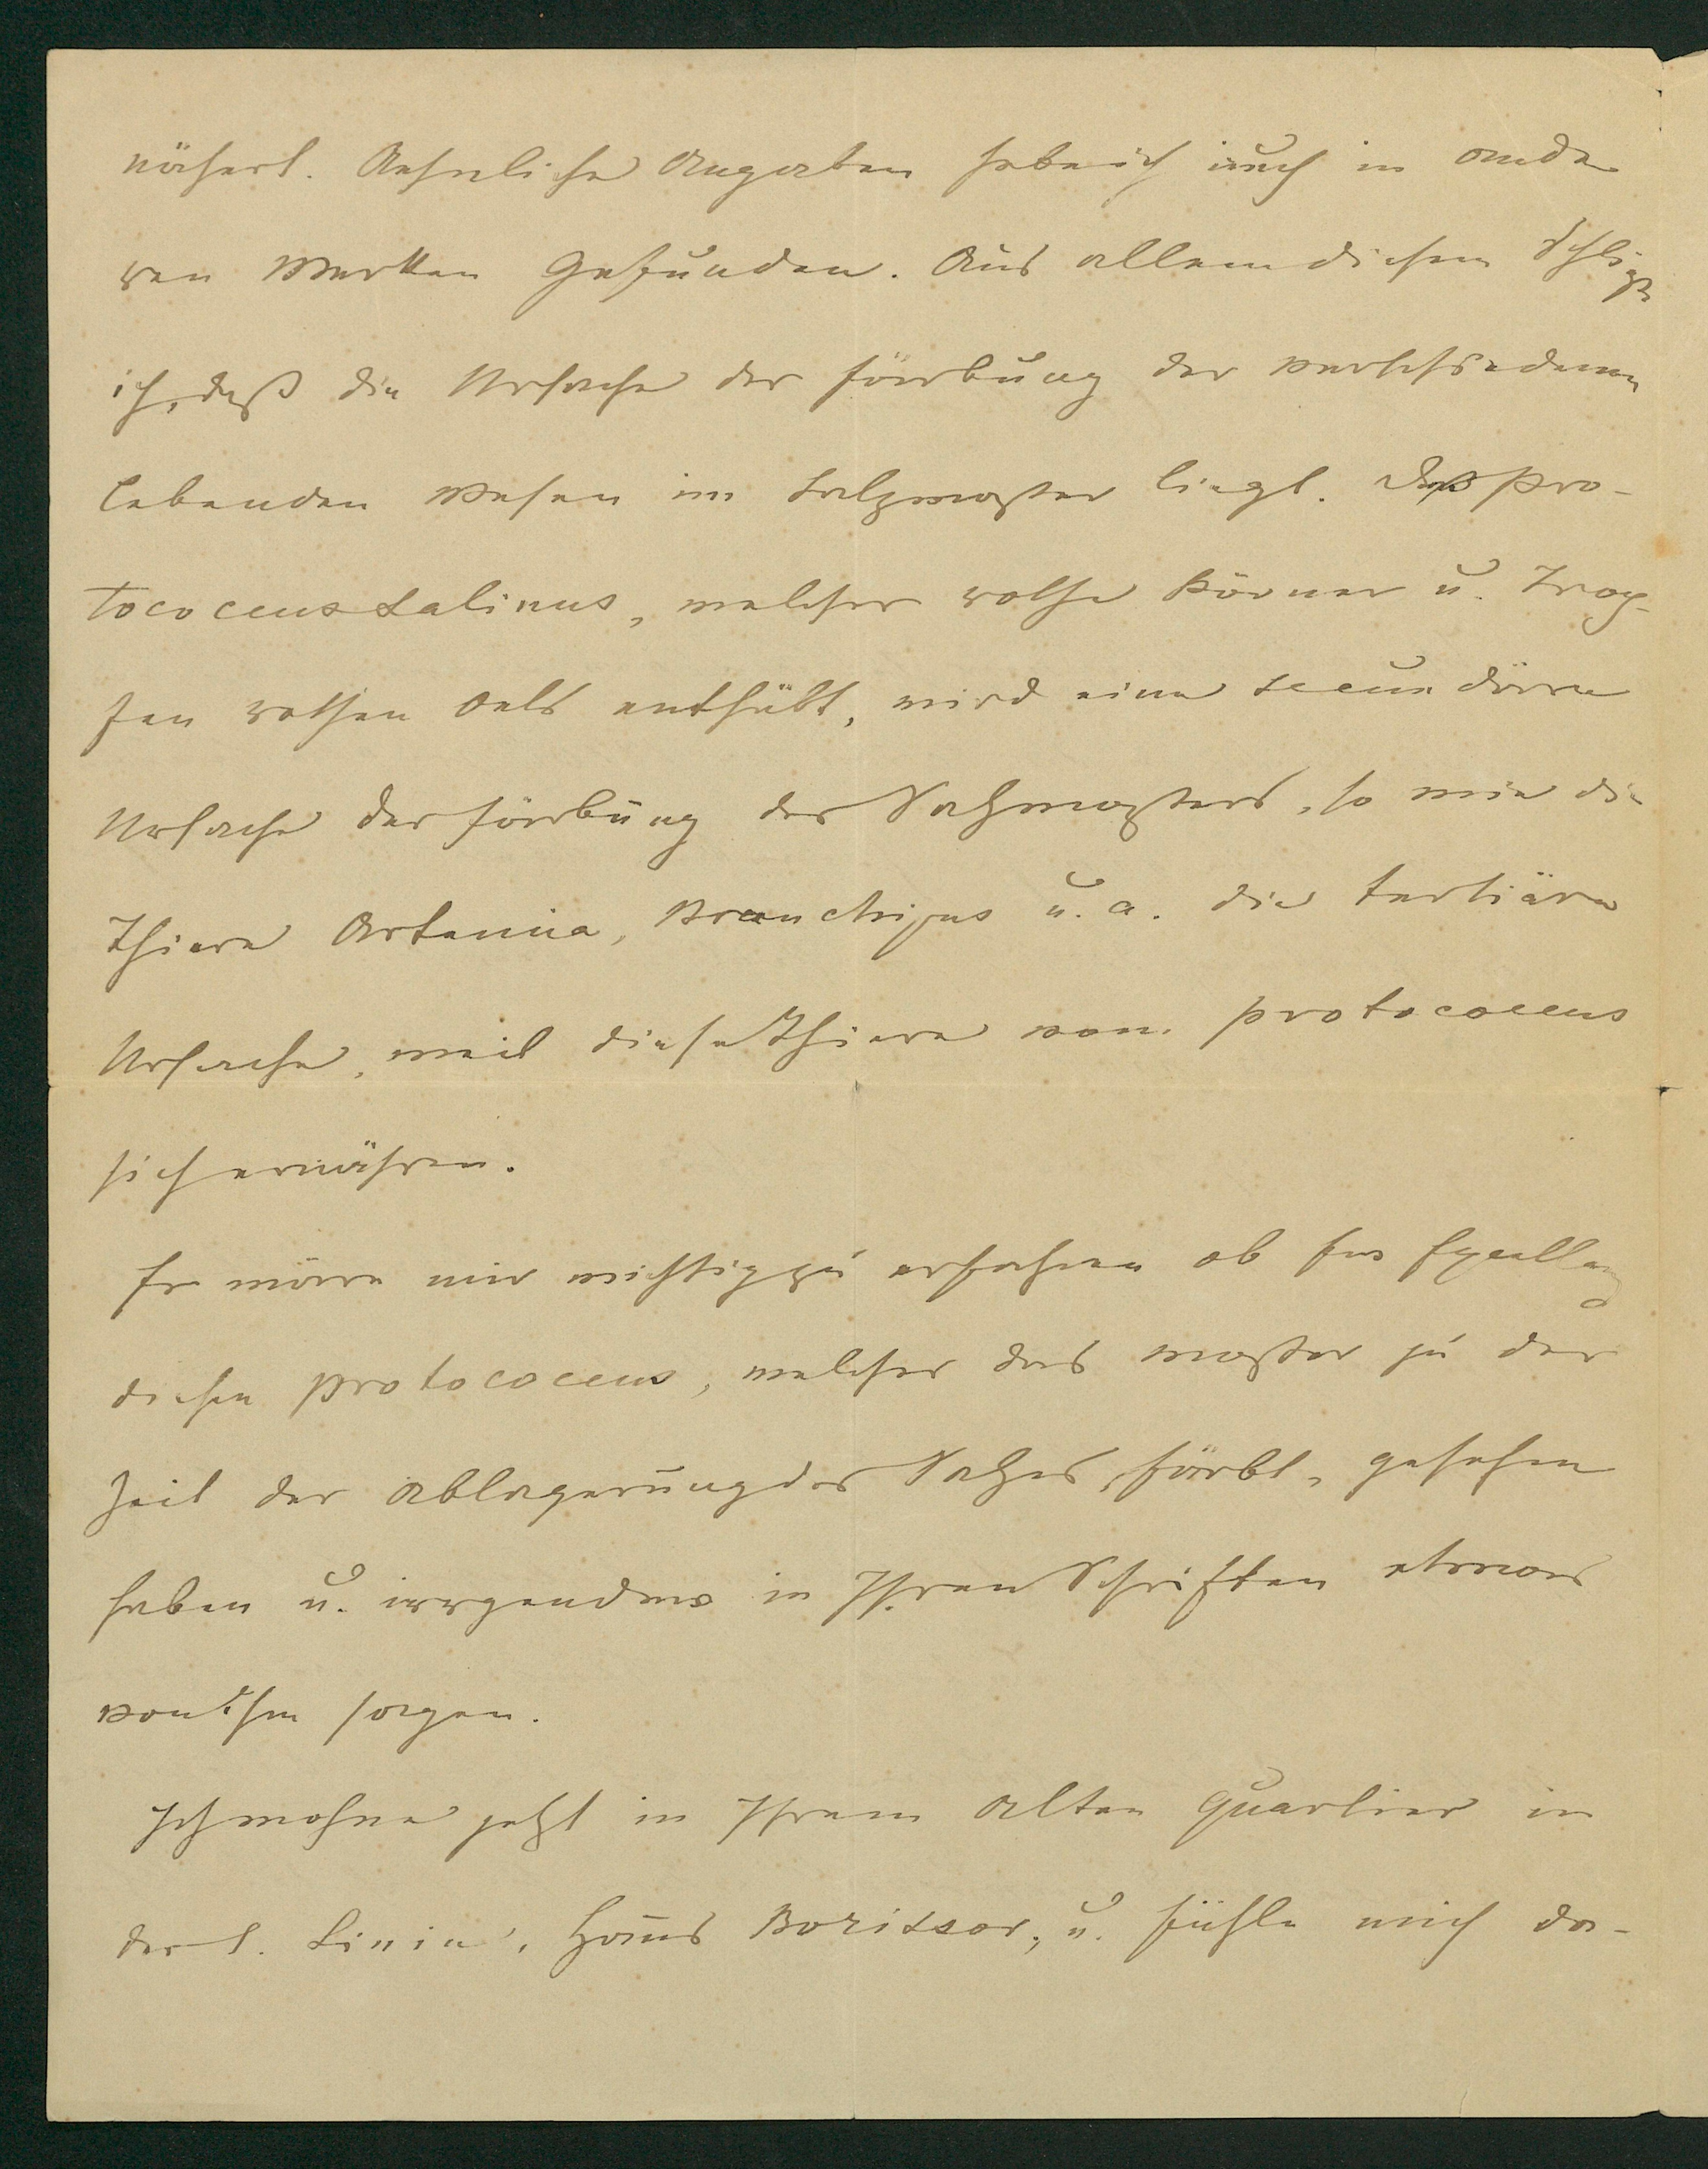 nähert. Aehnliche Angaben habe ich auch in ande
ren Werken Gefunden. Aus allem diesen Schließe
ich, daß die Ursache der färbung der verschiedenen
lebenden Wesen im Salzwaßer liegt. Der Pro-
tococcus Salinus, welcher rothe Körner u. Trop-
fen rothen Oels enthält, wird eine secundäre
Ursache der färbung des Salzwaßers, so wie die
Thiere Artemia, Branchipus u. a. die tertiäre
Ursache, weil diese Thiere vom protococcus
sich ernähren.
Es wäre mir wichtig zu erfahren ob Eur Excellenz
diesen protococcus, welcher das waßer zu der
Zeit der Ablagerung des Salzes, färbt, gesehen
haben u. irrgendwo in Ihren Schriften etwas
von ihm sagen.
Ich wohne jetzt in Ihrem alten Quartier in
der 1. Linie, Haus Borissow, u. fühle mich da-